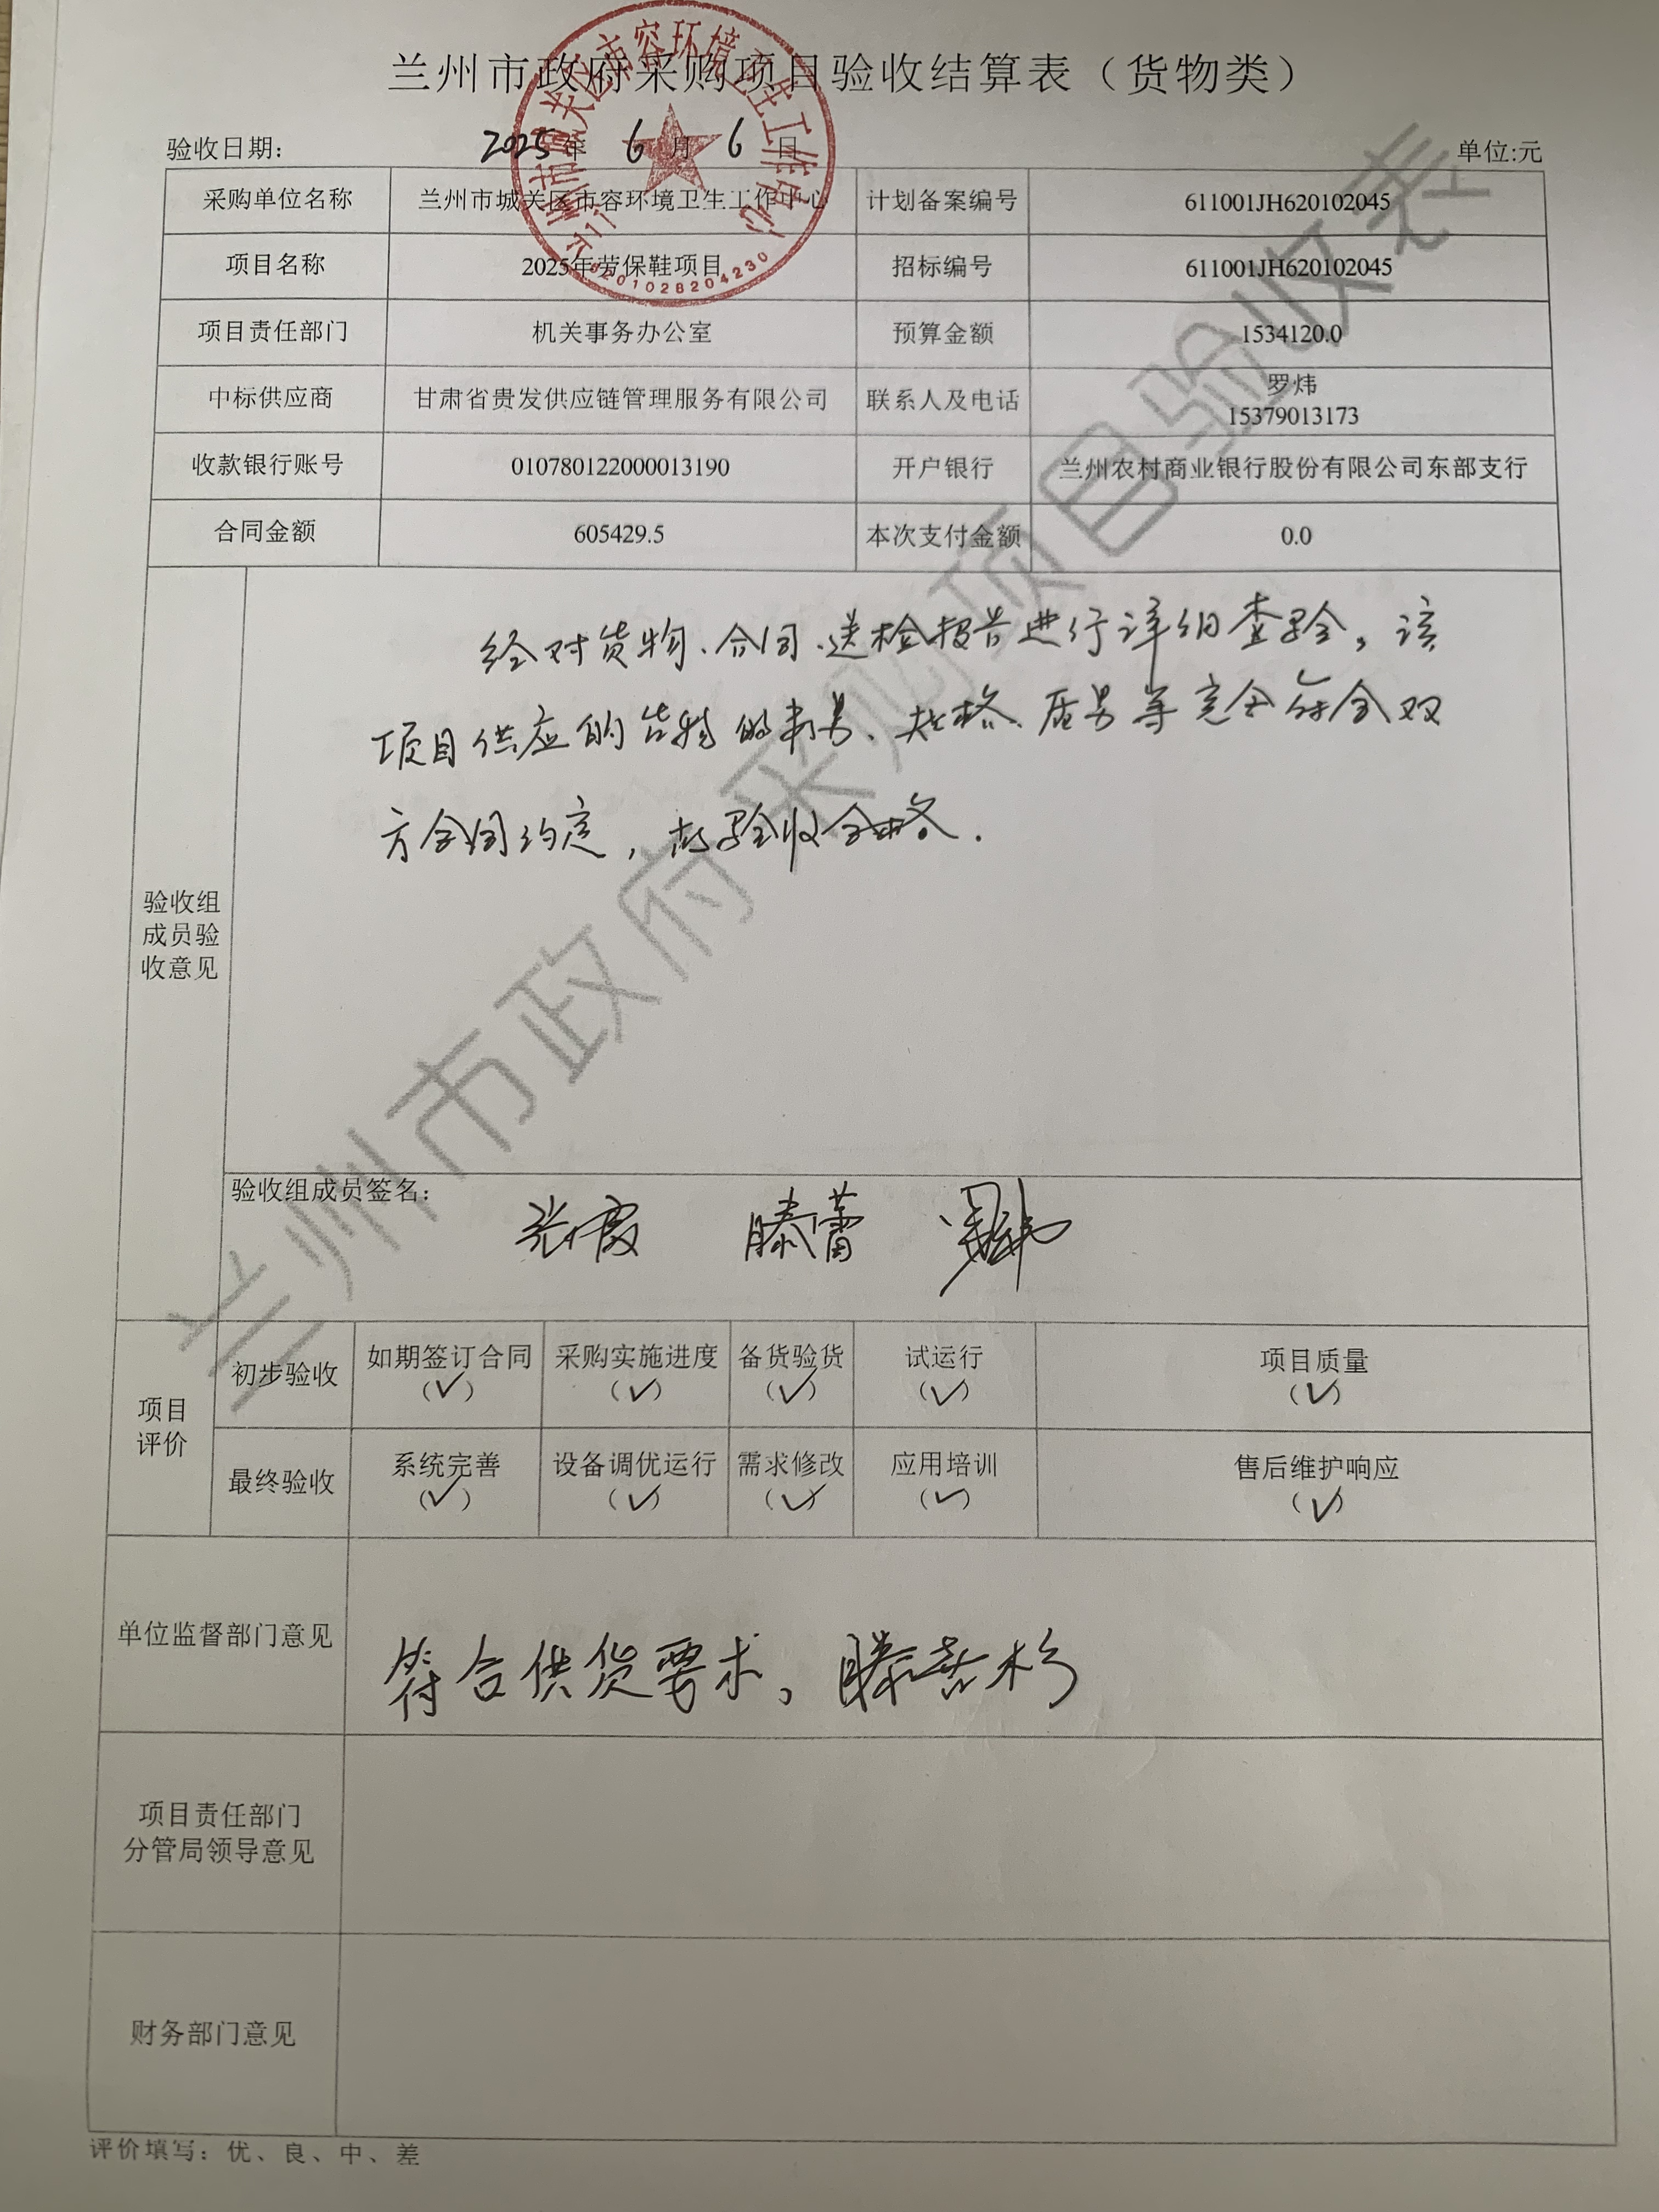 兰州市政府采购项目验收结算表（货物类）
验收日期： 2025年 6月 6日 单位:元
采购单位名称 兰州市城关区市容环境卫生工作中心 计划备案编号 611001JH620102045
项目名称 2025年劳保鞋项目 招标编号 611001JH620102045
项目责任部门 机关事务办公室 预算金额 1534120.0
中标供应商 甘肃省贵发供应链管理服务有限公司 联系人及电话 罗炜
15379013173
收款银行账号 010780122000013190 开户银行 兰州农村商业银行股份有限公司东部支行
合同金额 605429.5 本次支付金额 0.0
验收组
成员验
收意见
经对货物、合同、送检报告进行详细查验，该
项目供应的货物的数量、规格、质量等完全符合双
方合同约定，故验收合格.
验收组成员签名：
张霞 滕蕾
项目
评价
初步验收 如期签订合同 采购实施进度 备货验货 试运行 项目质量
（✓） （✓） （✓） （✓） （✓）
最终验收 系统完善 设备调优运行 需求修改 应用培训 售后维护响应
（✓） （✓） （✓） （✓） （✓）
单位监督部门意见
符合供货要求。
项目责任部门
分管局领导意见
财务部门意见
评价填写：优、良、中、差
兰州市政府采购项目验收表
兰州市城关区市容环境卫生工作中心
6201028204230